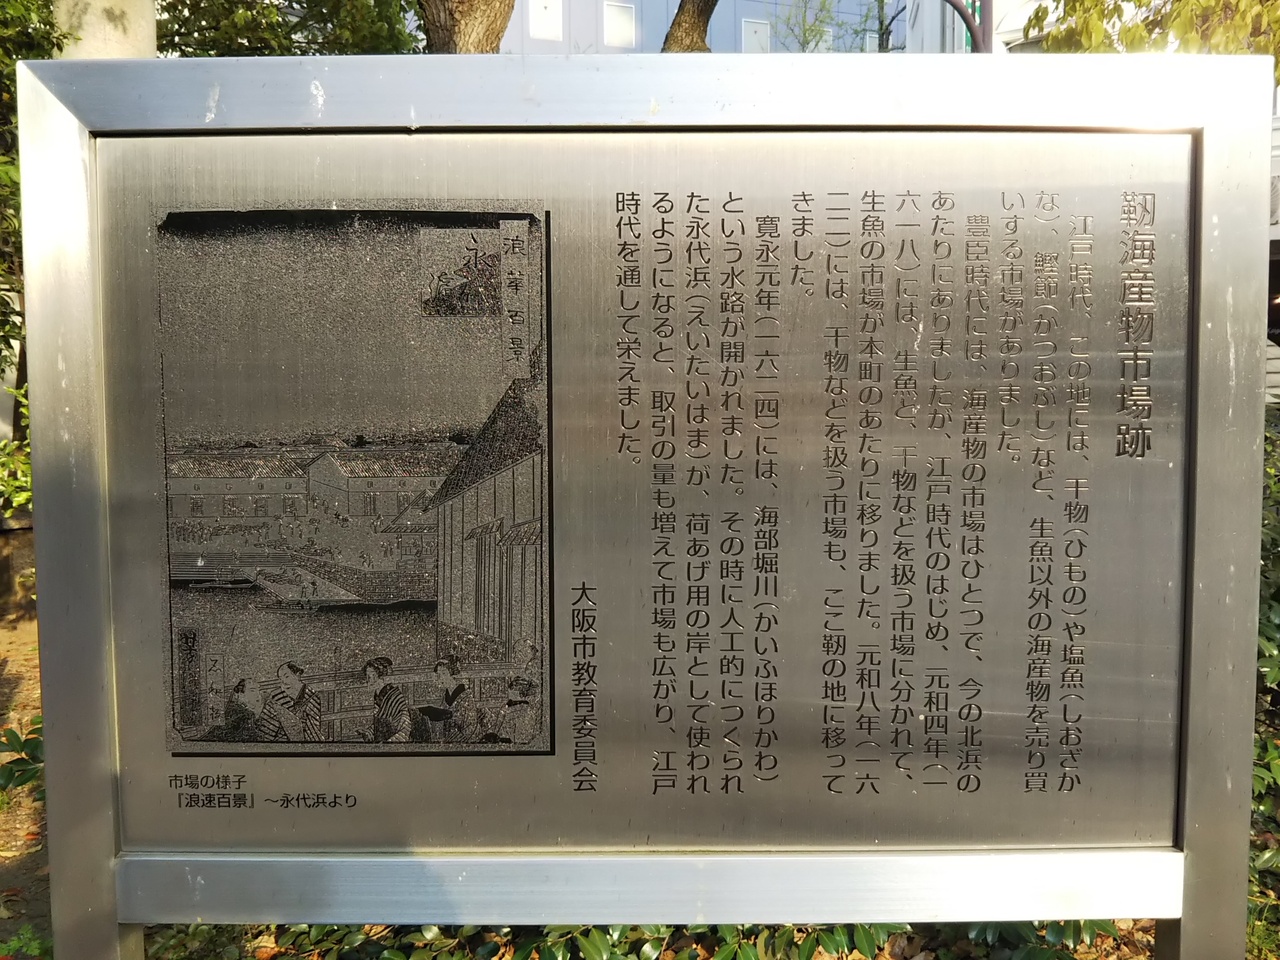 靱海産物市場跡
　江戸時代、この地には、干物(ひもの)や塩魚(しおざか
な)、鰹節(かつおぶし)など、生魚以外の海産物を売り買
いする市場がありました。
　豊臣時代には、海産物の市場はひとつで、今の北浜の
あたりにありましたが、江戸時代のはじめ、元和四年(一
六一八)には、生魚と、干物などを扱う市場に分かれて、
生魚の市場が本町のあたりに移りました。元和八年(一六
二二)には、干物などを扱う市場も、ここ靱の地に移って
きました。
　寛永元年(一六二四)には、海部堀川(かいふほりかわ)
という水路が開かれました。その時に人工的につくられ
た永代浜(えいたいはま)が、荷あげ用の岸として使われ
るようになると、取引の量も増えて市場も広がり、江戸
時代を通して栄えました。
大阪市教育委員会
浪華百景
永
市場の様子
『浪速百景』～永代浜より